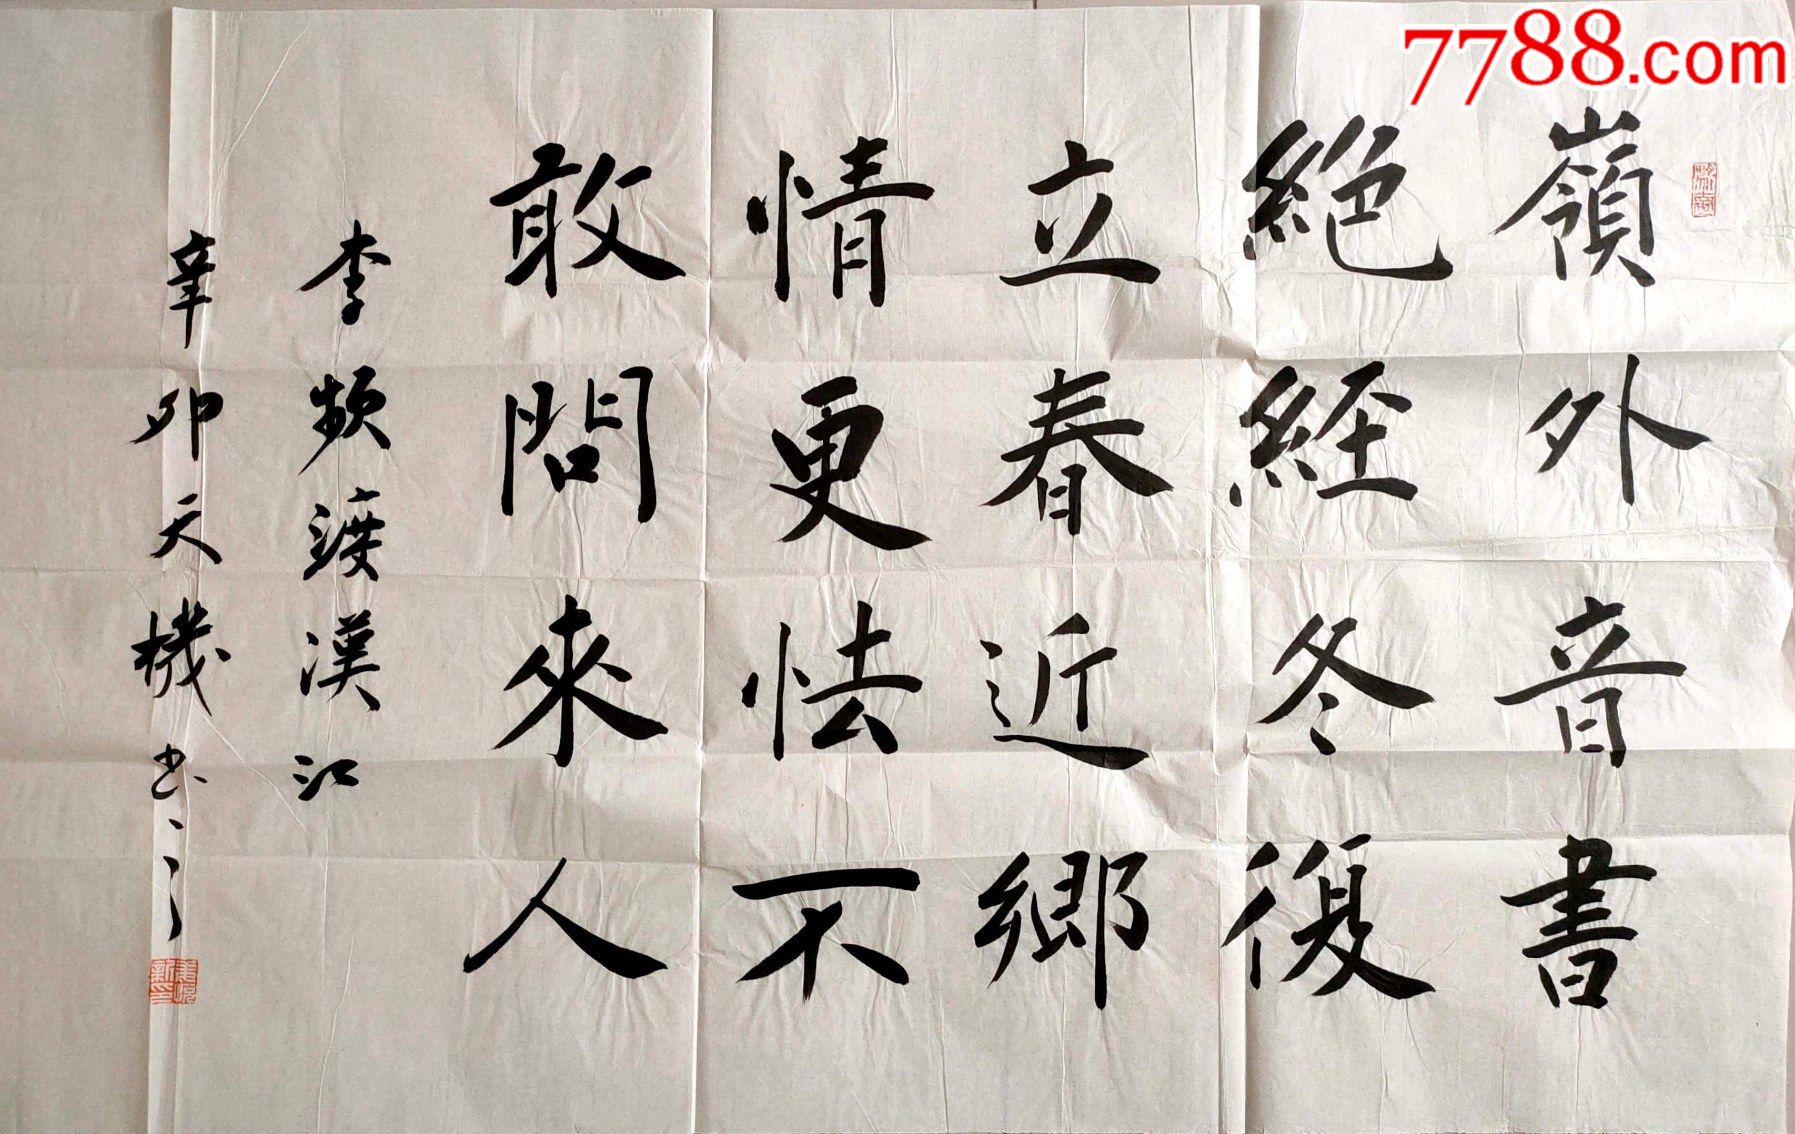 嶺外音書
絶経冬復
立春近鄉
情更怯不
敢問來人
李頻渡漢江
辛卯天機書之
7788.com